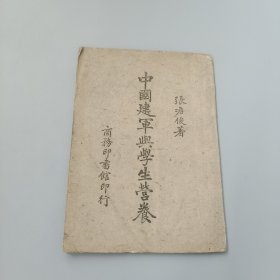 張浩俊著
中國建軍與學生營養
商務印書館印行